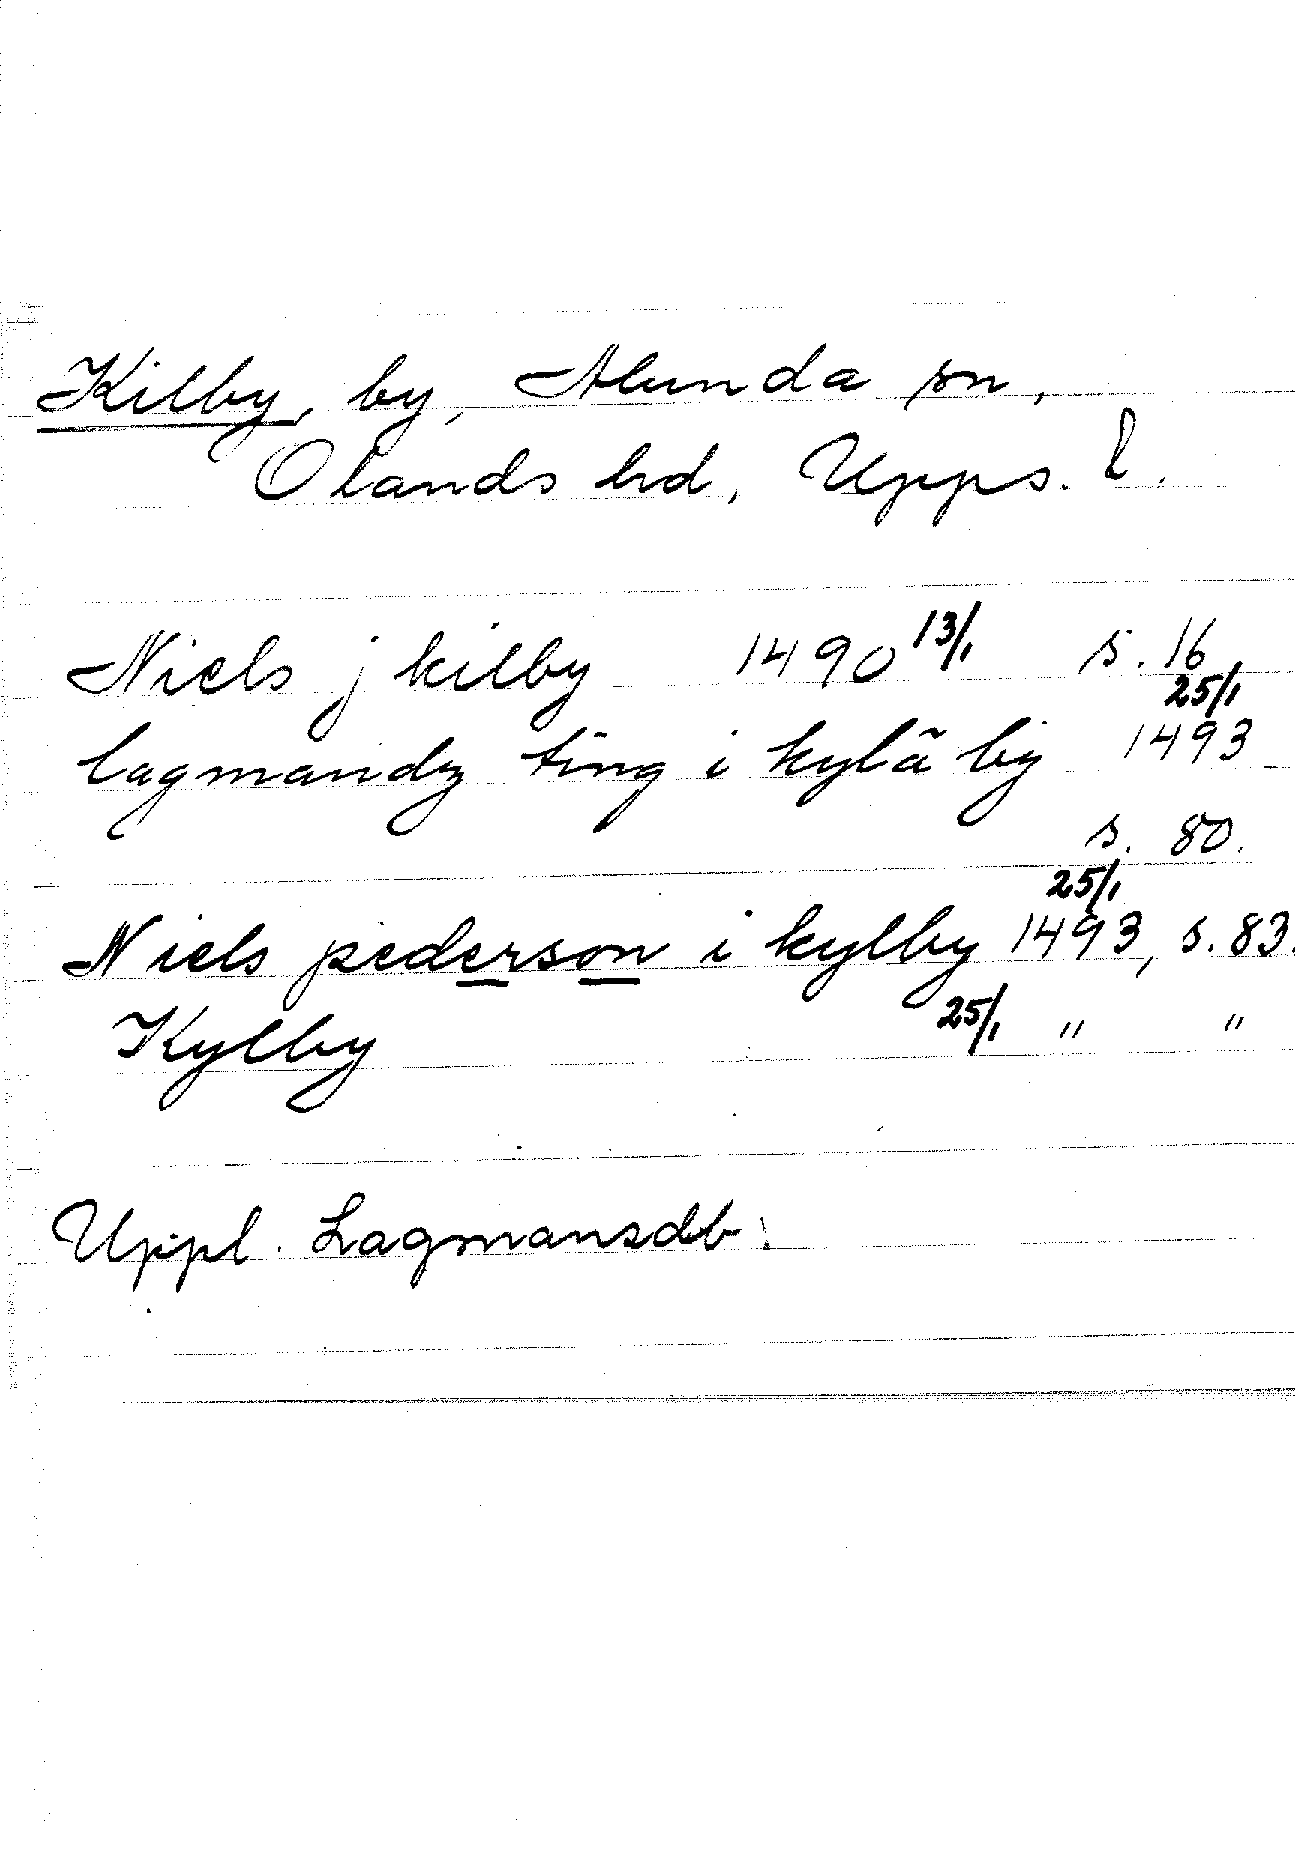 Kilby, by, Alunda sn,
Olands hd, Upps. l.
Niels j kilby 1490 13/1 s. 16
lagmandz ting i kylã by 25/1 1493
s. 80.
Niels pederson i kylby 25/1 1493, s. 83.
Kylby 25/1 " "
Uppl. Lagmansdb.